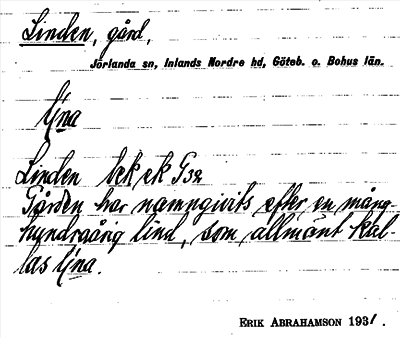 Linden, gård,
Jörlanda sn, Inlands Nordre hd, Göteb. o. Bohus län.
lj̣na
Linden bek ek G32
Gården har namngivits efter en mång-
hundraårig lind, som allmänt kal-
las ljna.
ERIK ABRAHAMSON 1931.